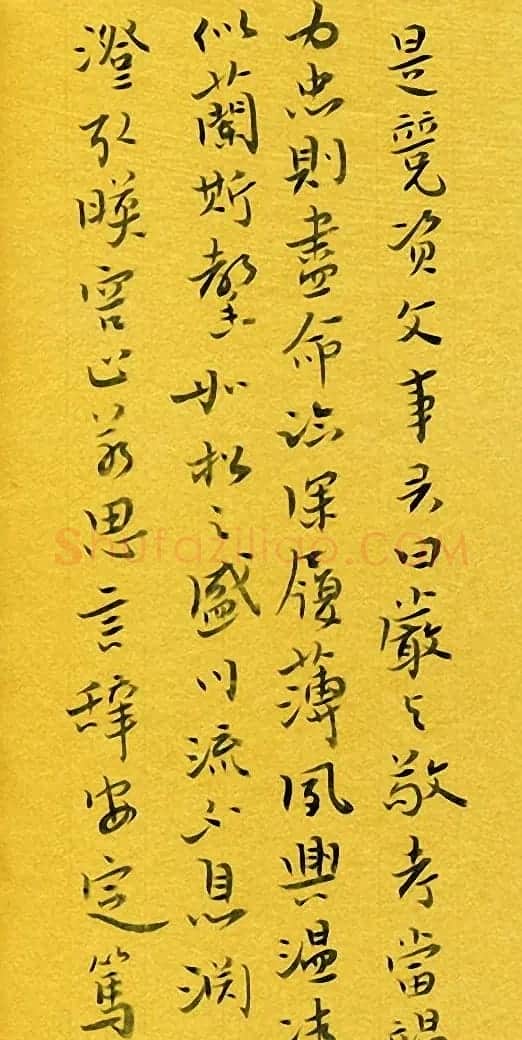 是競資父事君曰嚴與敬孝當竭
力忠則盡命臨深履薄夙興溫
似蘭斯馨如松之盛川流不息淵
澄取暎容止若思言辭安定篤
Shufaziliao.COM